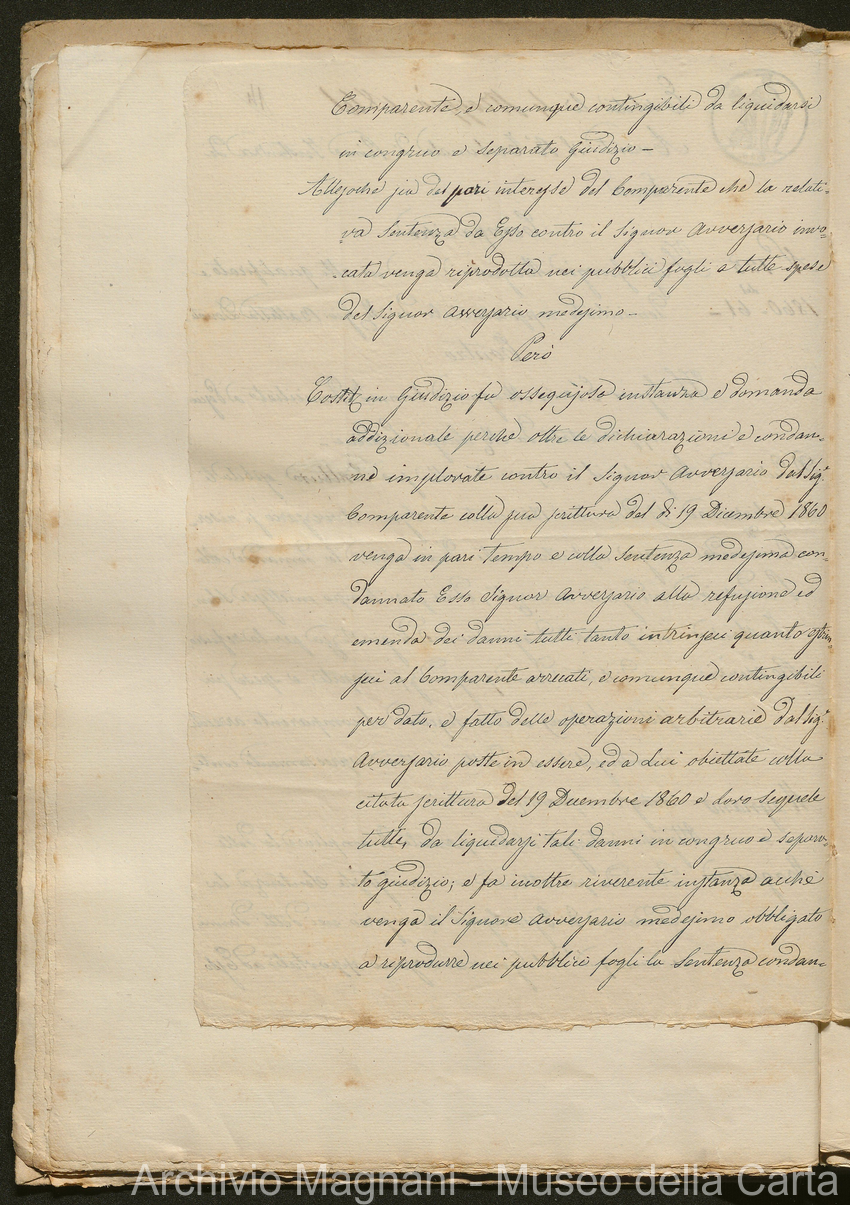 Comparente, e comunque contingibili da liquidarsi
in congruo e separato Giudizio —
Allesoche sia del pari interesse del Comparente che la relati-
va Sentenza da Esso contro il Signor Avversario invo-
cata venga riprodotta nei pubblici fogli a tutte spese
del Signor Avversario medesimo —
Però
Costit in Giudizio fa ossequiosa instanza e domanda
addizionale perchè oltre le dichiarazioni e condan-
ne implorate contro il Signor Avversario dal Sig.r
Comparente colla sua scrittura del dì 19 Dicembre 1860
venga in pari tempo e colla Sentenza medesima con-
dannato Esso Signor Avversario alla refusione ed
emenda dei danni tutti tanto intrinseci quanto estrin-
seci al Comparente arrecati, e comunque contingibili
per dato, e fatto delle operazioni arbitrarie dal Sig.r
Avversario poste in essere, ed a Lui obiettate colla
citata scrittura del 19 Decembre 1860 e loro sequele
tutte, da liquidarsi tali danni in congruo e separa-
to giudizio; e fa inoltre riverente instanza acchè
venga il Signore Avversario medesimo obbligato
a riprodurre nei pubblici fogli la Sentenza condan-
Archivio Magnani - Museo della Carta